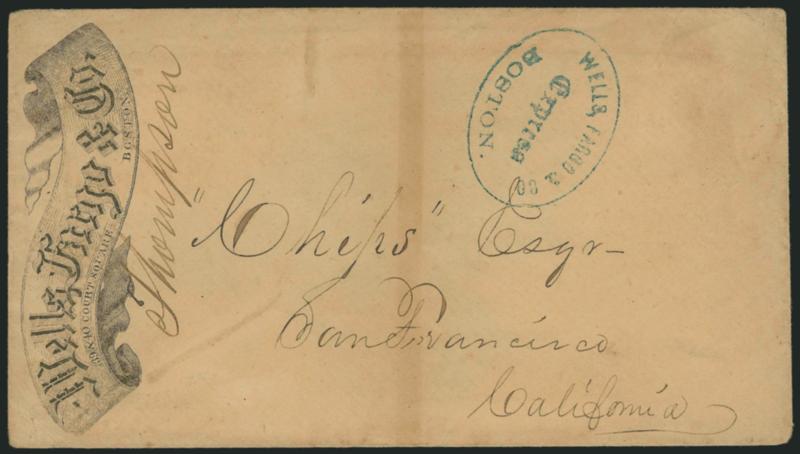 Wells, Fargo & Co.
39 & 40 COURT SQUARE,
BOSTON.
Thompson
WELLS FARGO & CO
Express
BOSTON.
"Chips" Esqr
San Francisco
California